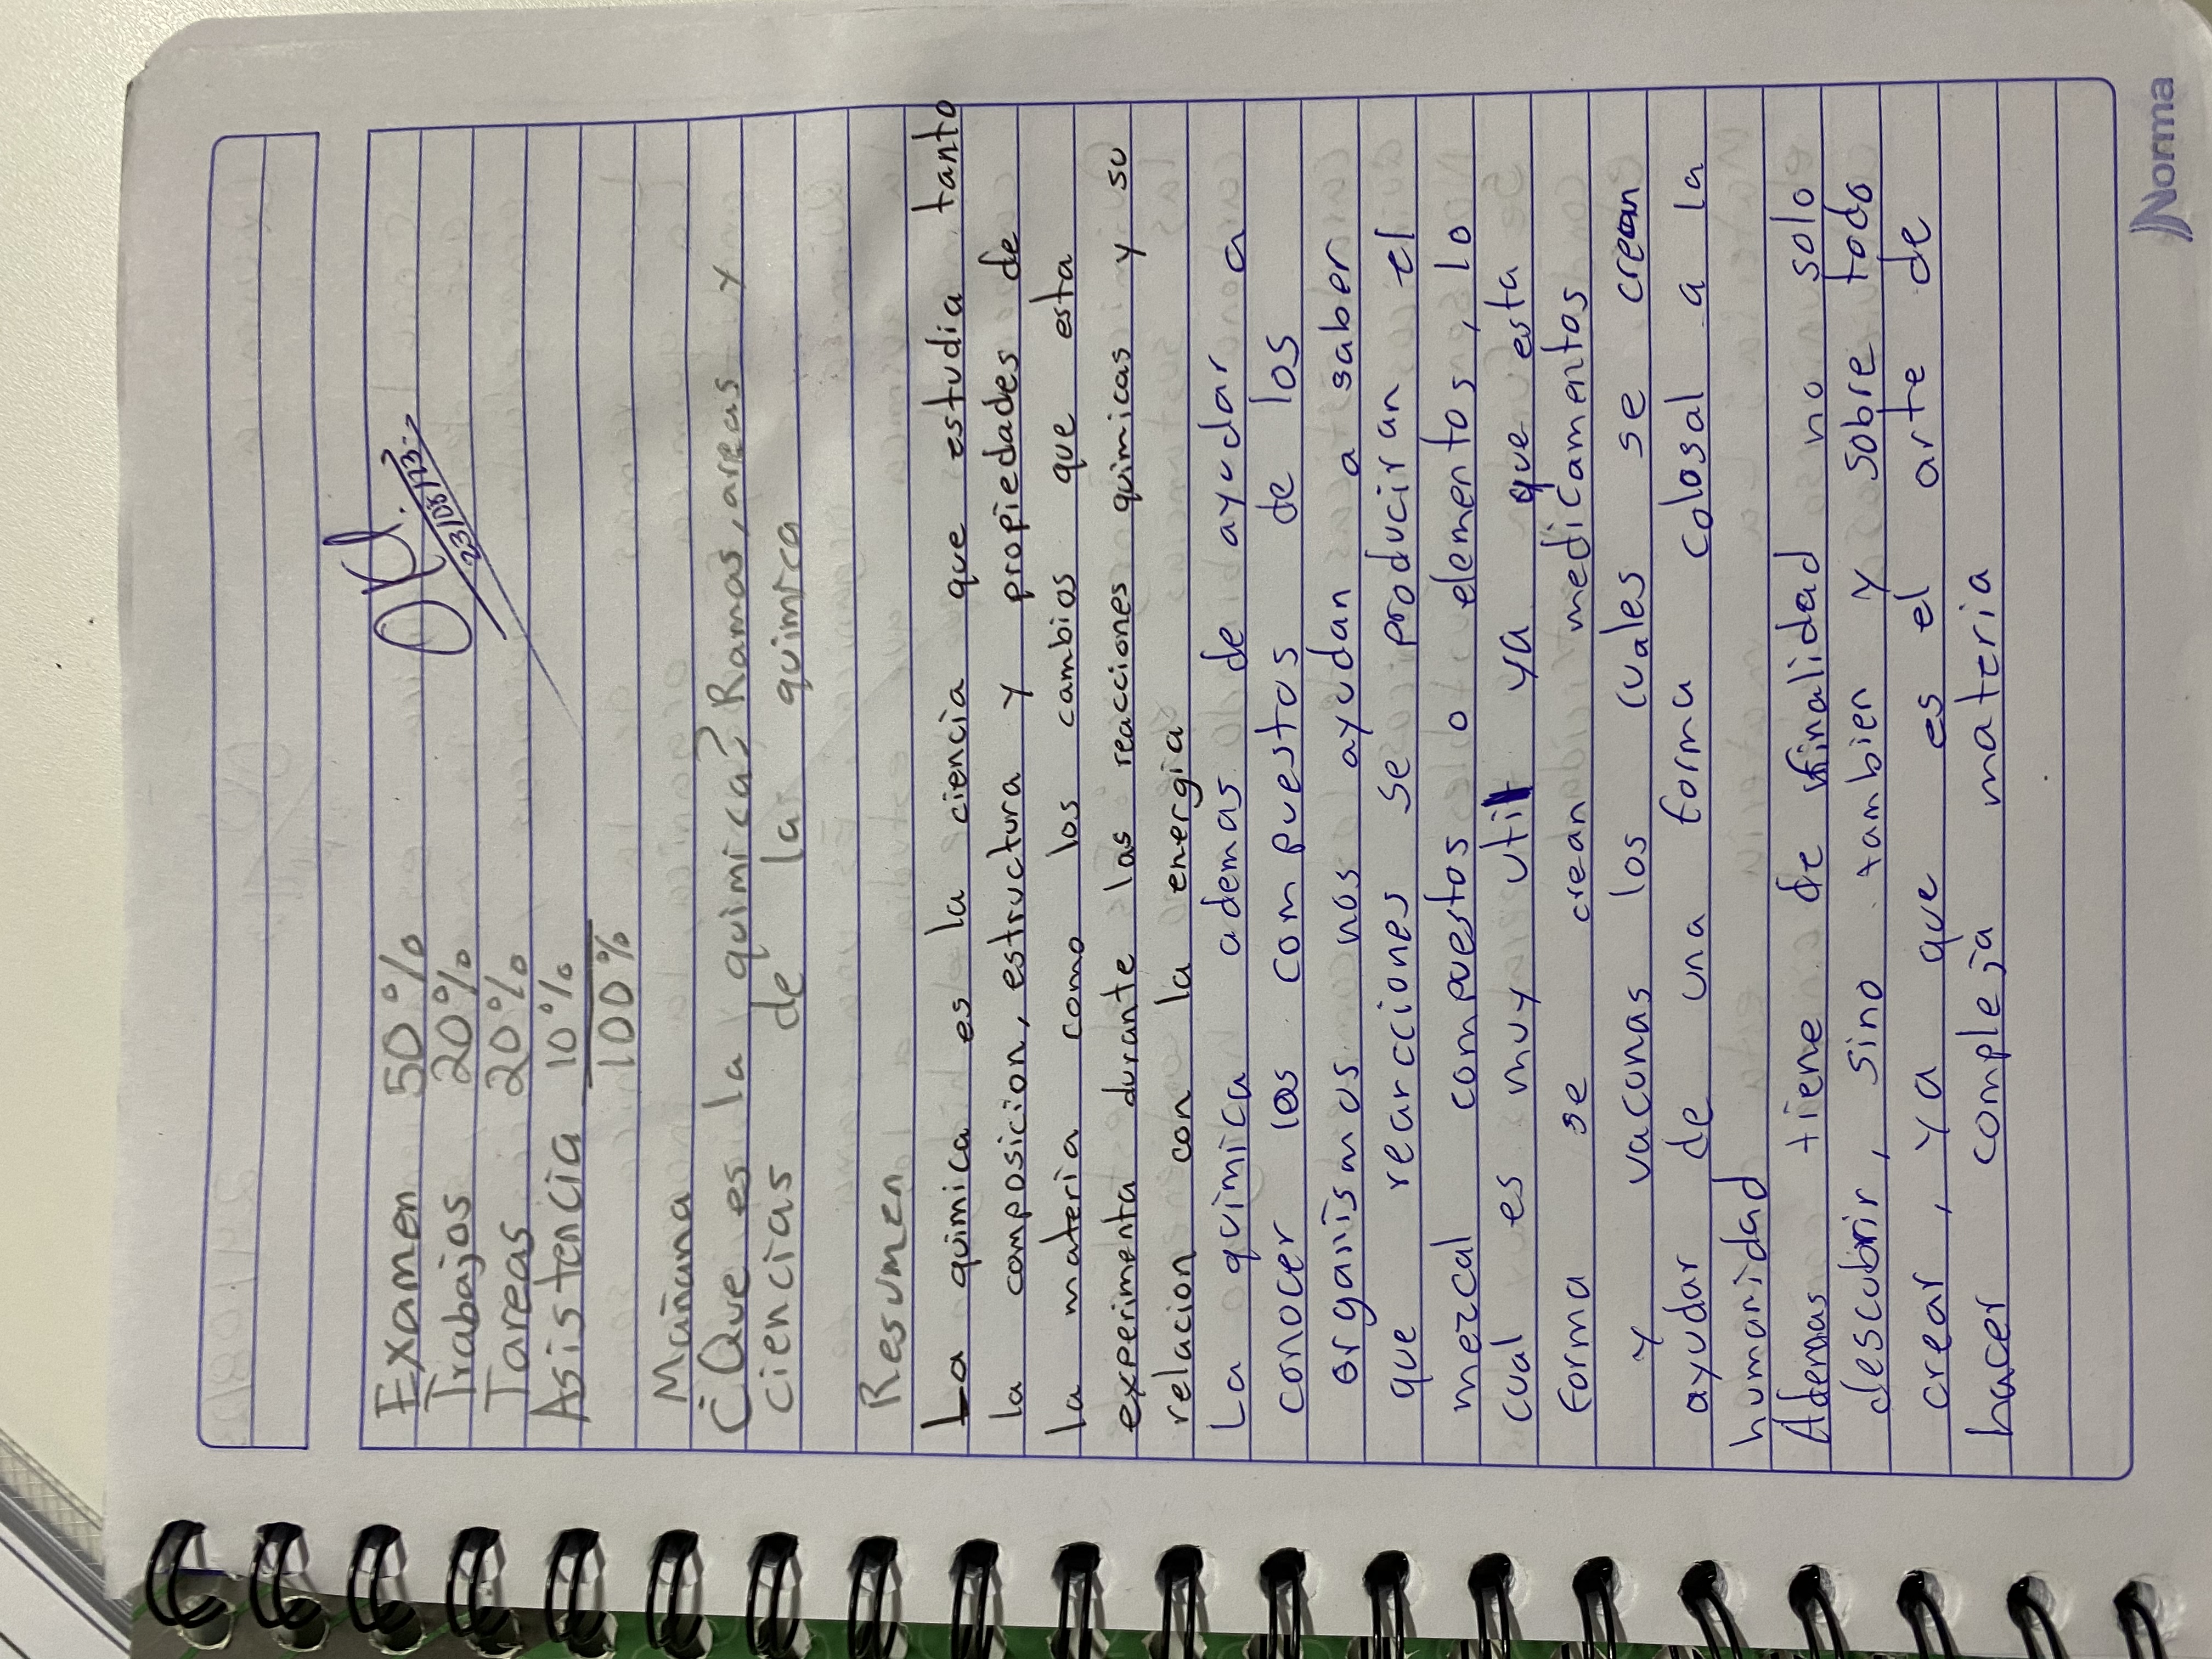 Examen 50%
Trabajos 20%
Tareas 20%
Asistencia 10%
100%
Mañana
¿Que es la quimica? Ramas, areas y
ciencias de la quimica
Resumen
La quimica es la ciencia que estudia tanto
la composicion, estructura y propiedades de
la materia como los cambios que esta
experimenta durante las reacciones quimicas y su
relacion con la energia
La quimica ademas de ayudar a
conocer los compuestos de los
organismos nos ayudan a saber
que rearcciones se produciran el
mezcal compuestos o elementos, lo
cual es muy util ya que esta
forma se crean medicamentos
y vacunas los cuales se crean
ayudar de una forma colosal a la
humanidad
Ademas tiene de finalidad no solo
descubrir, sino tambien y sobre todo
crear, ya que es el arte de
hacer compleja materia
Norma